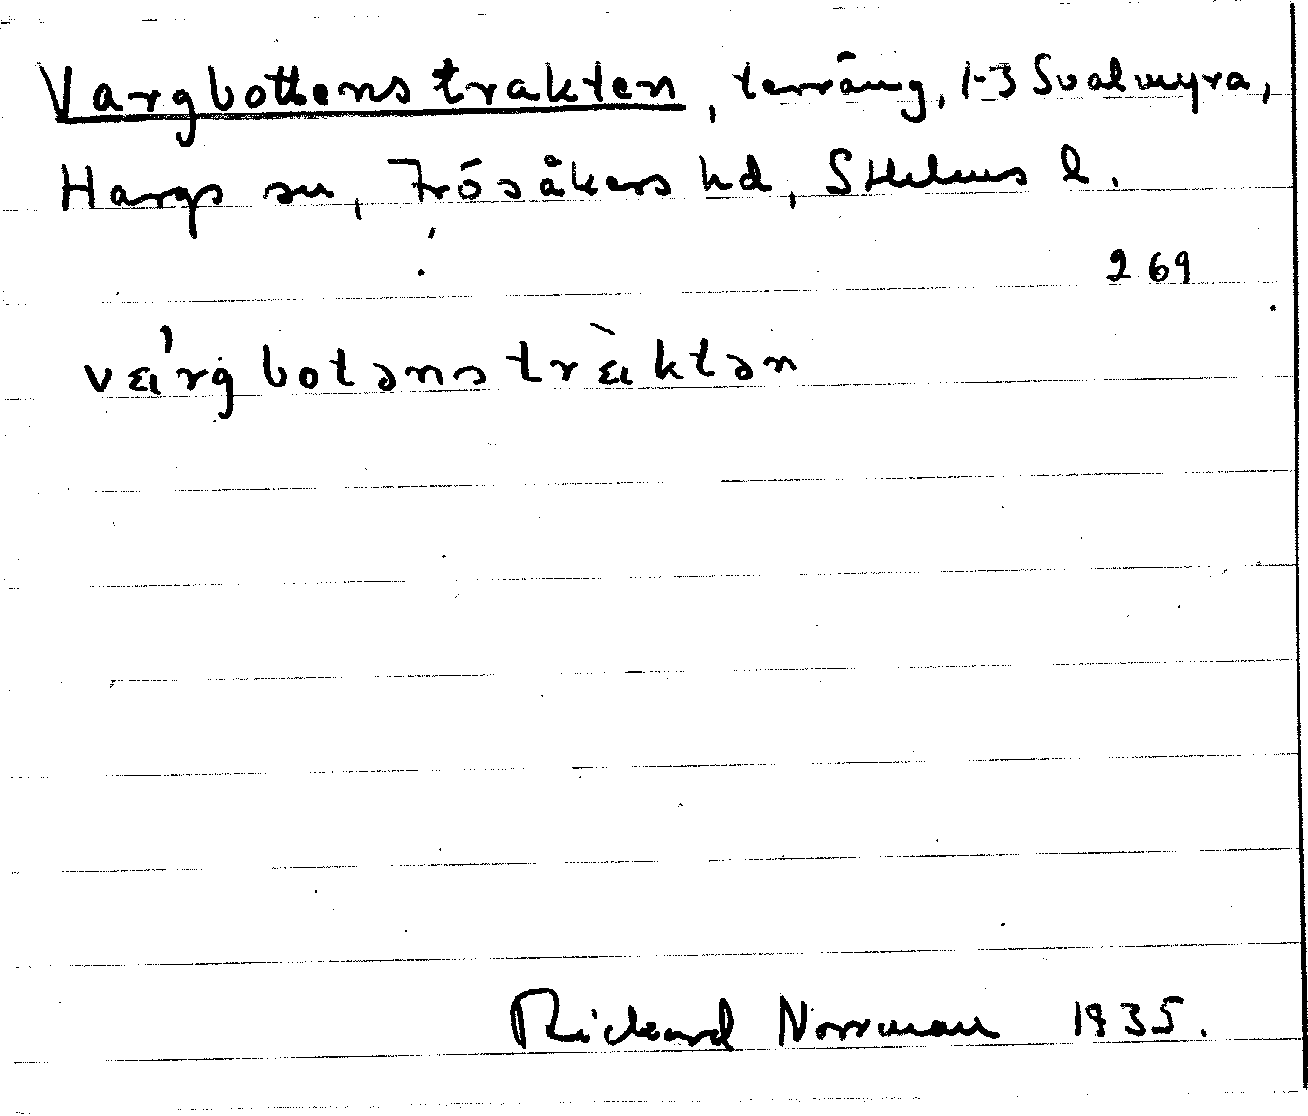 Vargbottenstrakten, terräng, 1-3 Svalmyra,
Hargs sn, Frösåkers hd, Sthlms l.
269
várgbotənstràktən
Rickard Norrman 1935.